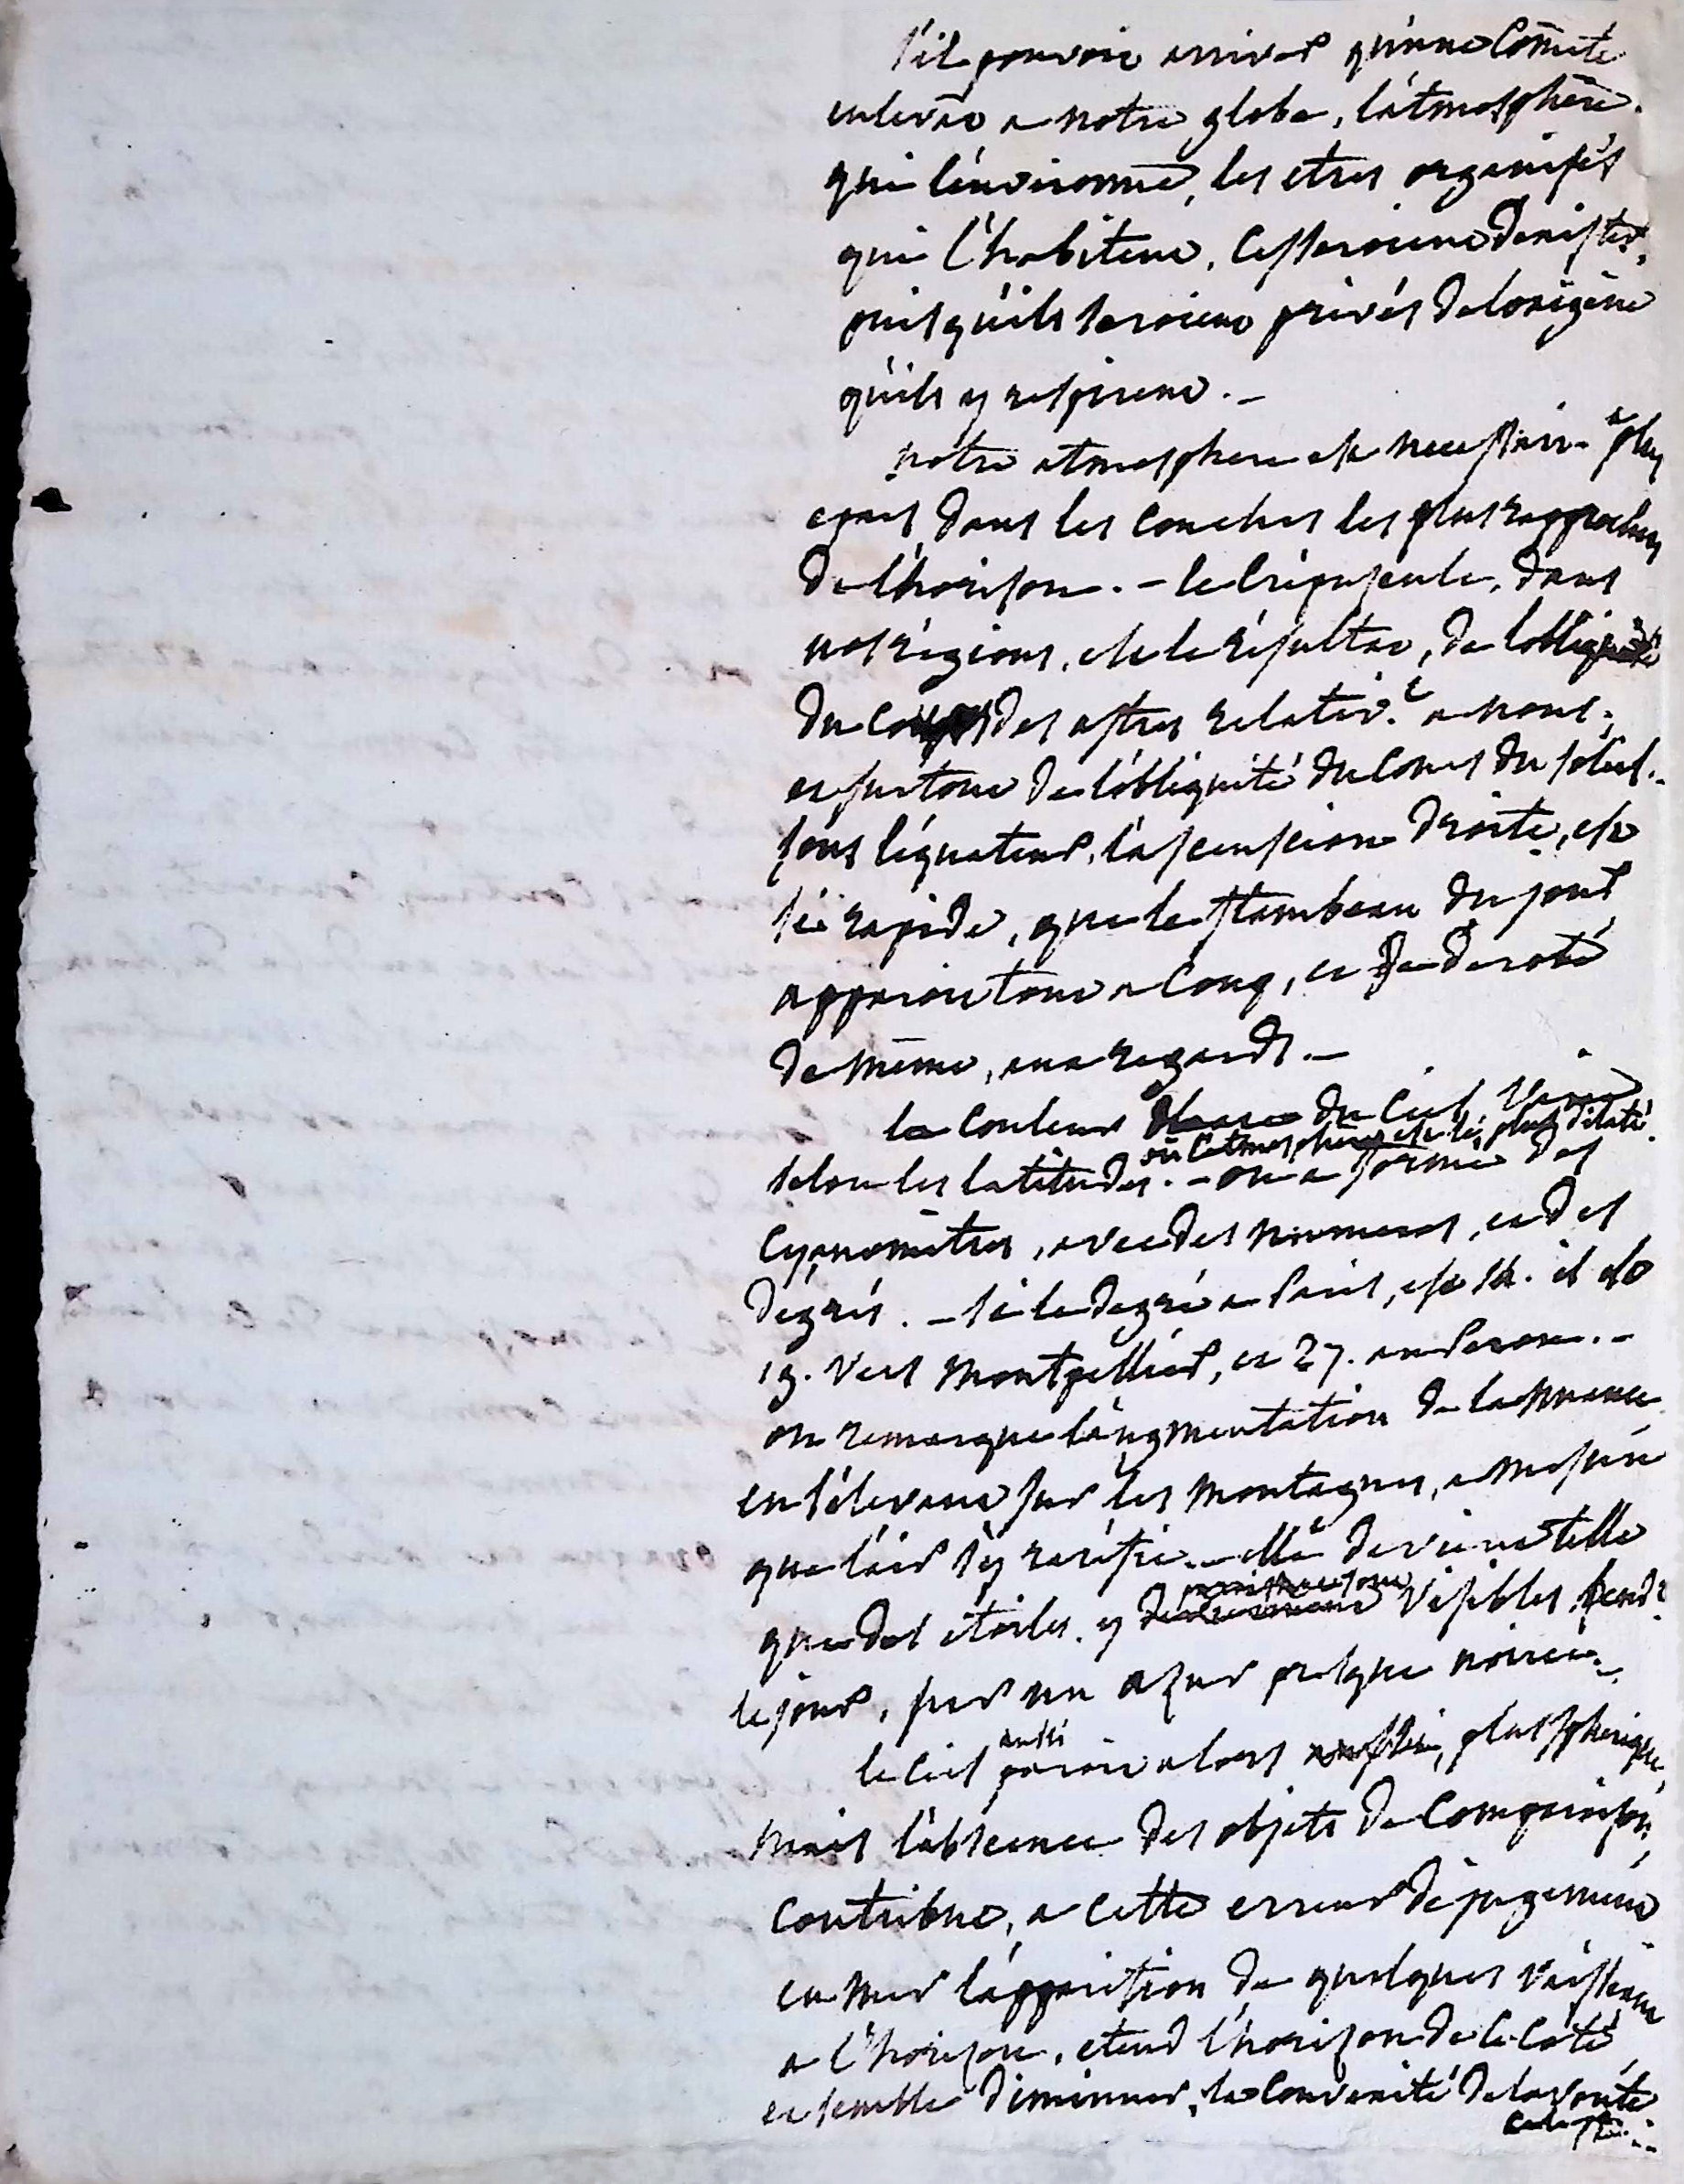 s'il pouvoit arriver qu'une Comète
enlevat a notre globe, l'atmosphère
qui l'environne, les etres organisés
qui l'habitent, Cesseroient d'exister,
puisqu'ils seroient privés de l'oxigène
qu'ils y respirent. –
notre atmosphere est necessair.t plus
epais dans les couches les plus rapprochées
de l'horison. – le Crépuscule, dans
nos régions, est le résultat, de l'obliquité
du cours des astres relativ.t a nous;
et surtout de l'obliquité du Cours du soleil.
sous l'équateur, l'ascension droite, est
si rapide, que le flambeau du jour
apparoit tout a Coup, et se derobe
de même, aux regards. –
la Couleur du Ciel varie
où l'atmosphère est le plus dilaté.
selon les latitudes. – on a formé des
Cyanomètres, avec des nuances, et des
dégrés. – si le dégré a Paris, est 14. il est
19. vers Montpellier, et 27. au
on remarque l'augmentation de la nuance
en s'élevant sur les montagnes, a mesure
que l'air s'y raréfie. – elle devient telle
que des étoiles y paroissent visibles, pend.t
le jour, sur un azur presque noirci.
le Ciel aussi paroit alors plus sphérique,
mais l'absence des objets de Comparaison,
Contribue, a cette erreur de jugement
en mer l'apparition de quelques vaisseaux
a l'horison, etend l'horison de ce coté
et semble diminuer, la Convexité de la voûte
celeste. –